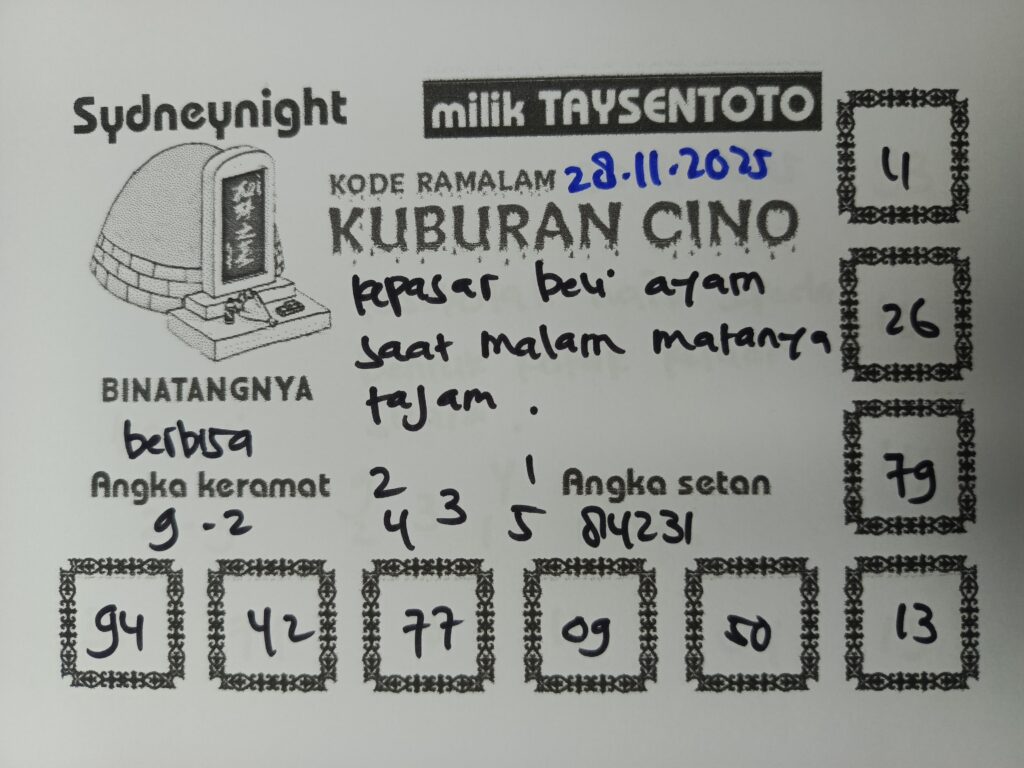 Sydneynight
milik TAYSENTOTO
KODE RAMALAM 28.11.2025
KUBURAN CINO
kepasar beli ayam
saat malam matanya
tajam .
BINATANGNYA
berbisa
Angka keramat
9 - 2
2 1
4 3 5
Angka setan
84231
11
26
79
94 42 77 09 50 13